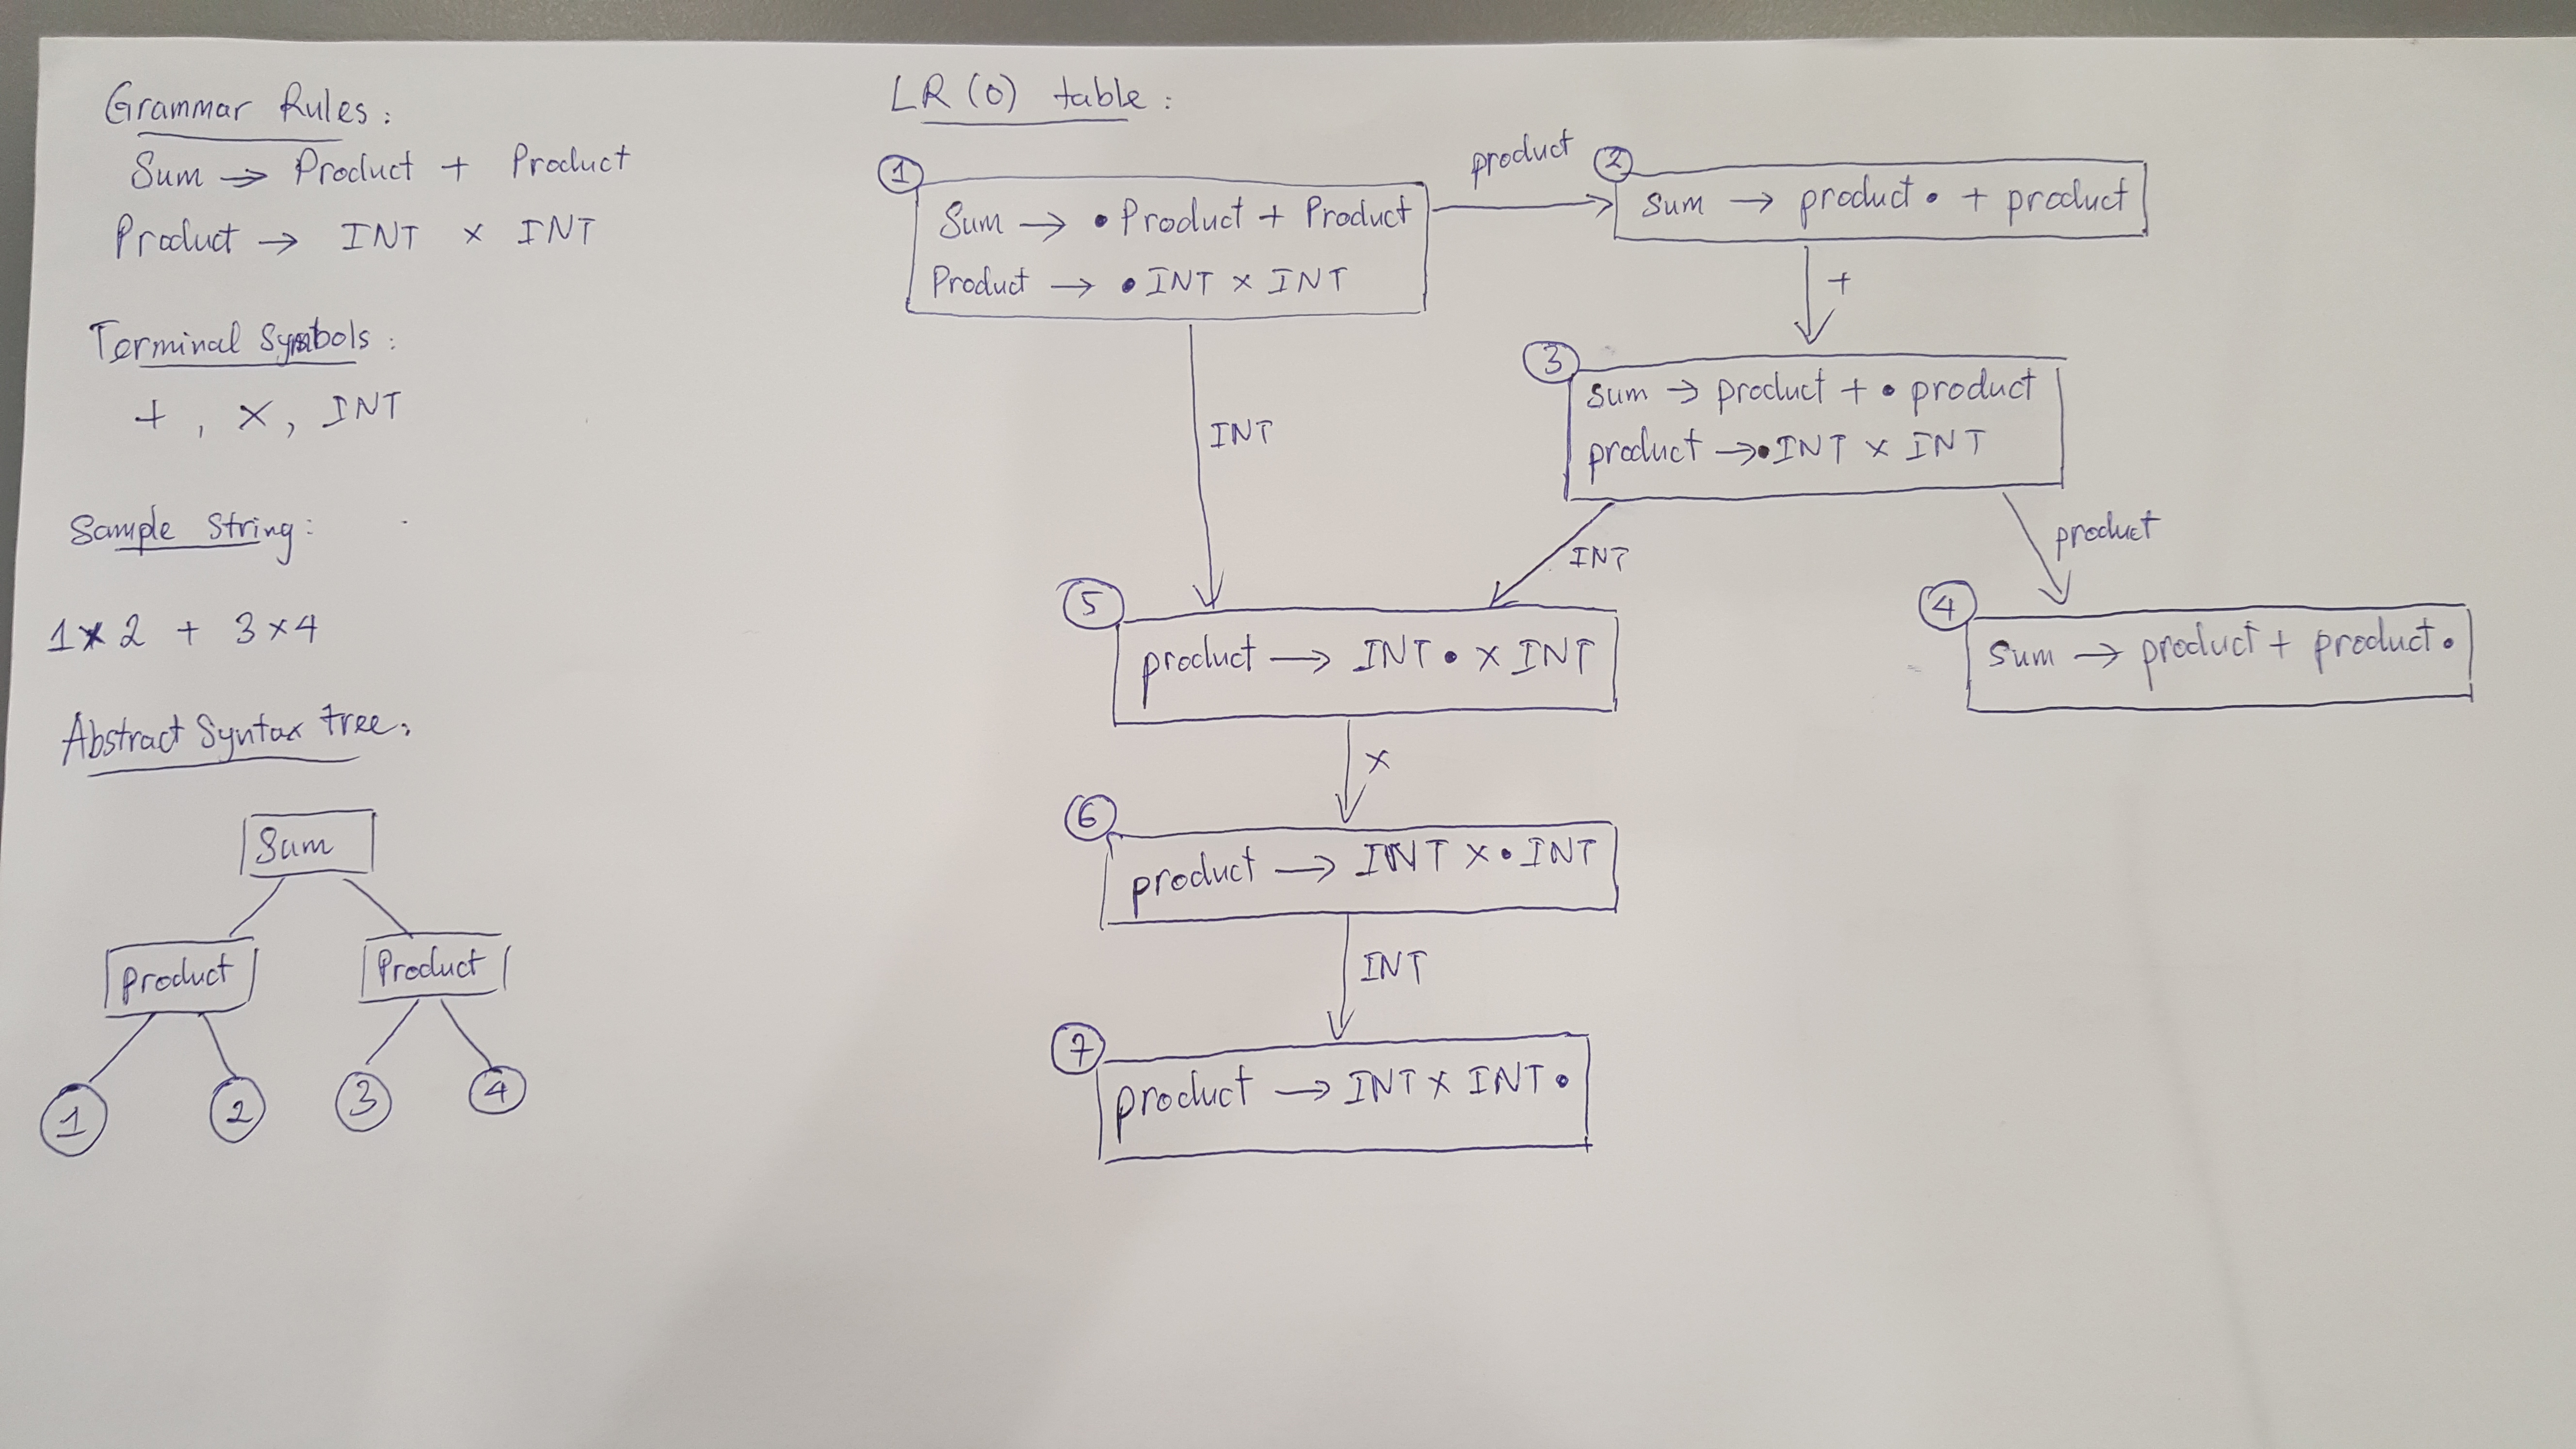 Grammar Rules:
Sum → Product + Product
Product → INT × INT
Terminal Symbols:
+ , ×, INT
Sample String:
1×2 + 3×4
Abstract Syntax tree:
Sum
product
Product
1
2
3
4
LR(0) table:
1
Sum → • Product + Product
Product → • INT × INT
product
2
sum → product • + product
+
3
sum → product + • product
product → • INT × INT
INT
INT
product
4
Sum → product + product •
5
product → INT • × INT
×
6
product → INT × • INT
INT
7
product → INT × INT •